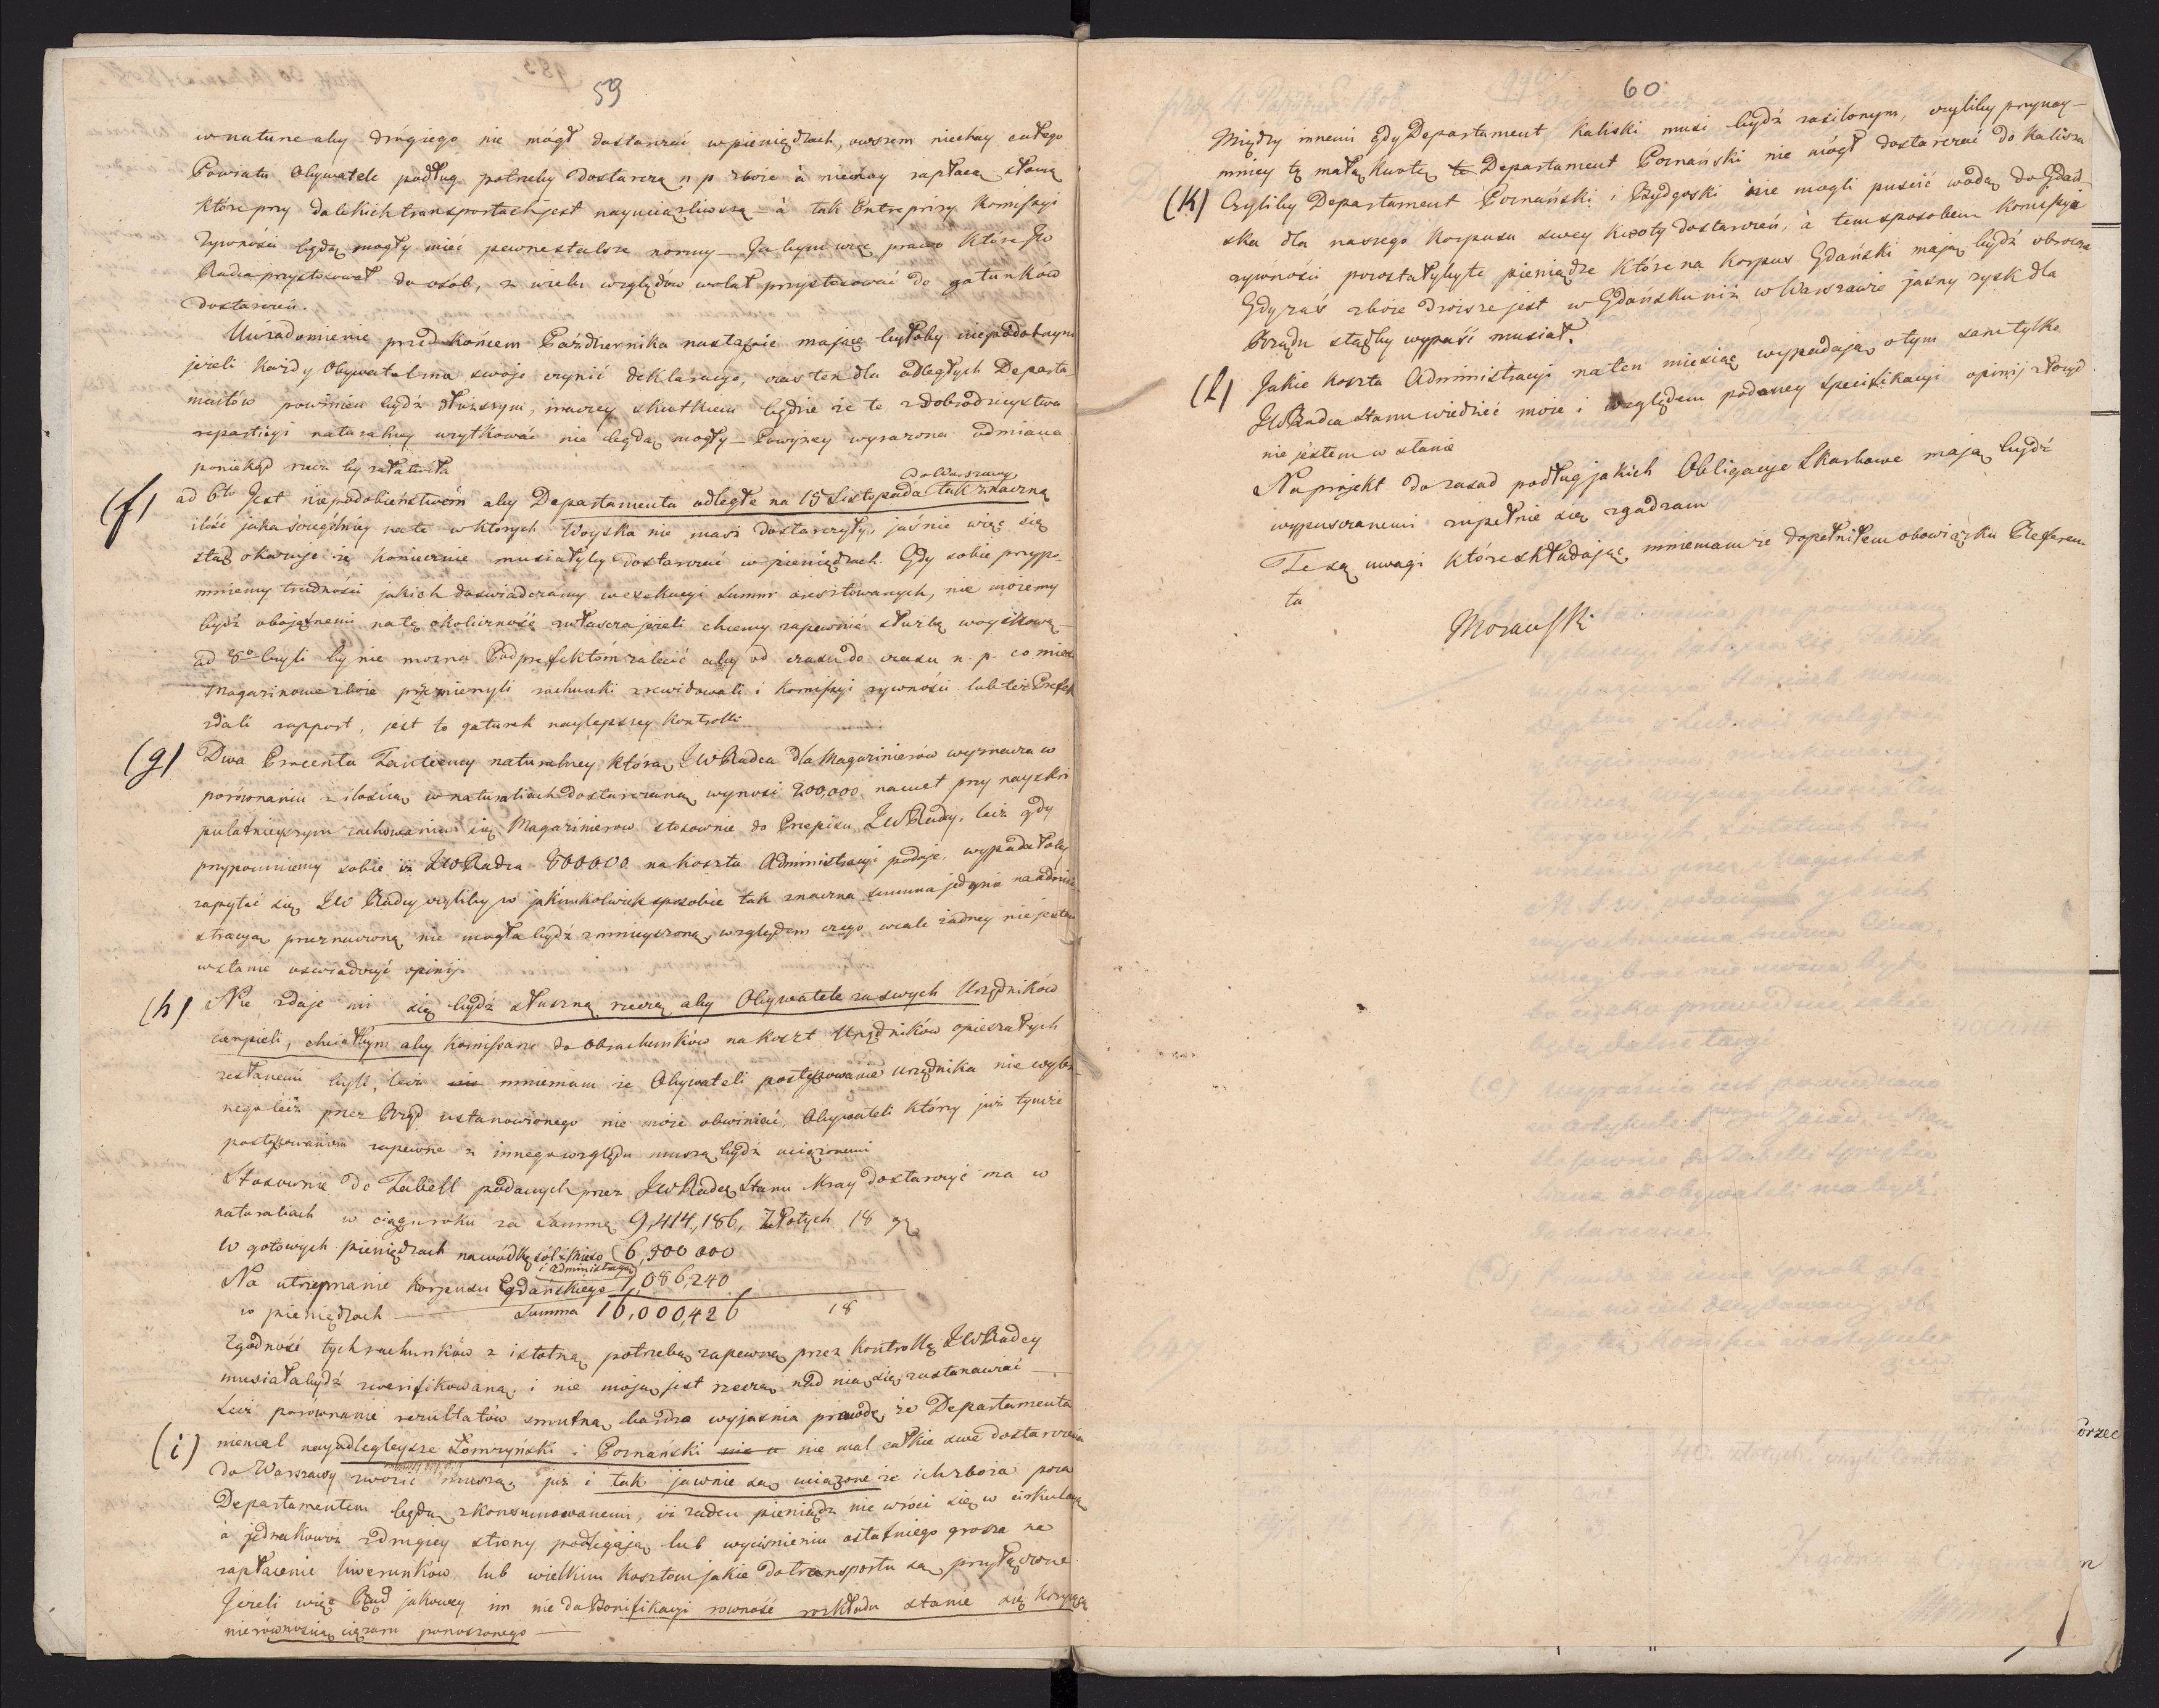 59
w naturze aby drugiego nie mógł dostarczać w pieniądzach, owszem niechay całego
Powiatu Obywatele podług potrzeby dostarczą n. p. zboże à niechay zapłacą słomę
które przy dalekich transportach jest nayuciążliwszą – à tak Entreprizy Kommissyi
Żywności będą mogły mieć pewne stalsze normy – Ja bym więc prawo które JW
Radca przystosował do osób, z wielu względów wolał przystosować do gatunków
dostarczeń.
Uwiadomienie przed końcem Października nastąpić mające byłoby niepodobnym
jeżeli każdy Obywatel ma swoje czynić deklaracye, czas ten dla odległych Departa-
mentów powinien bydź dłuższym, inaczey skutkiem będzie że te z dobrodzieystwa
repartycyi naturalney użytkować nie będą mogły – Powyżey wyrażona odmiana
poniekąd rzecz by załatwiła
(f) ad 6to Jest niepodobieństwem aby Departamenta odległe na 15 Listopada do Warszawy tak znaczną
ilość jaka szczególniey na te w których Woyska nie masz dostarczyły, jaśnie więc się
stąd okazuje iż koniecznie musiałyby dostarczać w pieniądzach. Gdy sobie przypo-
mniemy trudności jakich doświadczamy w exekucyi summ awertowanych, nie możemy
bydź obojętnemi na tę okoliczność zwłaszcza jeżeli chcemy zapewnić służbę woyskową –
ad 8o byli by nie można Podprefektom zalecić aby od czasu do czasu n. p. co mies.
Magazinowe zboże przemierzyli rachunki zrewidowali i Kommissyi żywności lub też Prefek
zdali rapport, jest to gatunek naylepszey kontrolli
(g) Dwa Procenta Tantiemy naturalney którą JW Radca dla Magazinierów wyznacza w
porównaniu z ilością w naturaliach dostarczaną wynosi 200,000 nawet przy nayskru
pulatnieyszym zachowaniu się Magazinierow stosownie do Przepisu JW Radcy, lecz gdy
przypomniemy sobie iż JW Radca 800000 na koszta Administracyi podaje, wypadałoby
zapytać się JW Radcy czyliby w jakimkolwiek sposobie tak znaczna summa jedynie na admini
stracyą przeznaczona nie mogła bydź zmnieyszoną, względem czego wcale żadney nie jestem
w stanie oświadczyć opinij.
(h) Nie zdaje mi się bydź słuszną rzeczą aby Obywatele za swych Urzędników
cierpieli, chciałbym aby Komissarze do Obrachunków na koszt Urzędników opieszałych
zesłanemi byli, lecz mniemam że Obywateli postępowanie urzędnika nie wybra
nego lecz przez Rząd ustanowionego nie może obwiniać, Obywateli którzy już tymże
postępowaniem zapewne z innego względu muszą bydź uciążonemi
Stosownie do Tabell podanych przez JW Radcę Stanu Kray dostarczyć ma w
naturaliach w ciągu roku za Summę 9,414,186, Złotych 18 gr
W gotowych pieniądzach na wódkę sól i mięso i administracyą 6,500 000
Na utrzymanie Korpusu Gdańskiego 1,086,240
w pieniądzach — Summa 16,000,426 18
Zgodność tych rachunków z istotną potrzebą zapewne przez Kontrollę JW Radcy
musiała bydź zweryfikowaną, i nie moją jest rzeczą nad nią się zastanawiać —
Lecz porównanie rezultatów smutną bardzo wyjaśnia prawdę że Departamenta
(i) niemal nayodlegleysze Łomżyński i Poznański nie mal całkie swe dostarczenia
do Warszawy zwozić muszą, już i tak jawnie są uciążone że ich zboża poza
Departamentem będą zkonsumowanemi, iż żaden pieniądz nie wróci się w cirkulacyą
à jednakowoż z drugiey strony podlegają lub wyciśnieniu ostatniego grosza na
zapłacenie liwerunków lub wielkim kosztom jakie do transportu są przyłączone
Jeżeli więc Rząd jakowey im nie da Bonifikacyi równość rozkładu stanie się krzyczącą
nierównością ciężaru ponoszonego —
60
Między innemi gdy Departament Kaliski musi bydź zasilonym, czyliby przynay-
mniey tę małą kwotę Departament Poznański nie mógł dostarczać do Kalisza
(k) Czyliby Departament Poznański i Bydgoski nie mogli puścić wodą do Gdań-
ska dla naszego Korpusu swey kwoty dostarczeń, à tem sposobem Komissyi
żywności pozostałyby te pieniądze które na korpus Gdański mają bydź obrócone
Gdyż zaś zboże droższe jest w Gdańsku niż w Warszawie jasny zysk dla
Rządu stądby wypaść musiał.
(l) Jakie koszta Administracyi na ten miesiąc wypadają o tym sam tylko
JW Radca Stanu wiedzieć może i względem podaney specifikacyi opinij złożyć
nie jestem w stanie
Na projekt do zasad podług jakich Obligacye Skarbowe mają bydź
wypuszczanemi zupełnie się zgadzam
Te są uwagi które składając mniemam że dopełniłem obowiązku Referen-
ta
Morawski